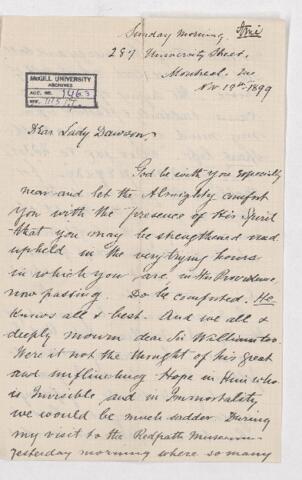 Sunday morning,
287 University Street,
Montreal, Que
Nov 19th 1899
McGILL UNIVERSITY
ARCHIVES
ACC. NO. 1463
REF.
Dear Lady Dawson,
God be with you especially
now and let the Almighty comfort
you with the presence of His Spirit
that you may be strengthened and
upheld in the very trying hours
in which you are in His Providence,
now passing. Do be comforted. He
knows all & best. And we all &
deeply mourn dear Sir William too.
Were it not the thought of his great
and unflinching Hope in Him who
is Invisible and in Immortality
we would be much sadder. During
my visit to the Redpath Museum
yesterday morning where so many